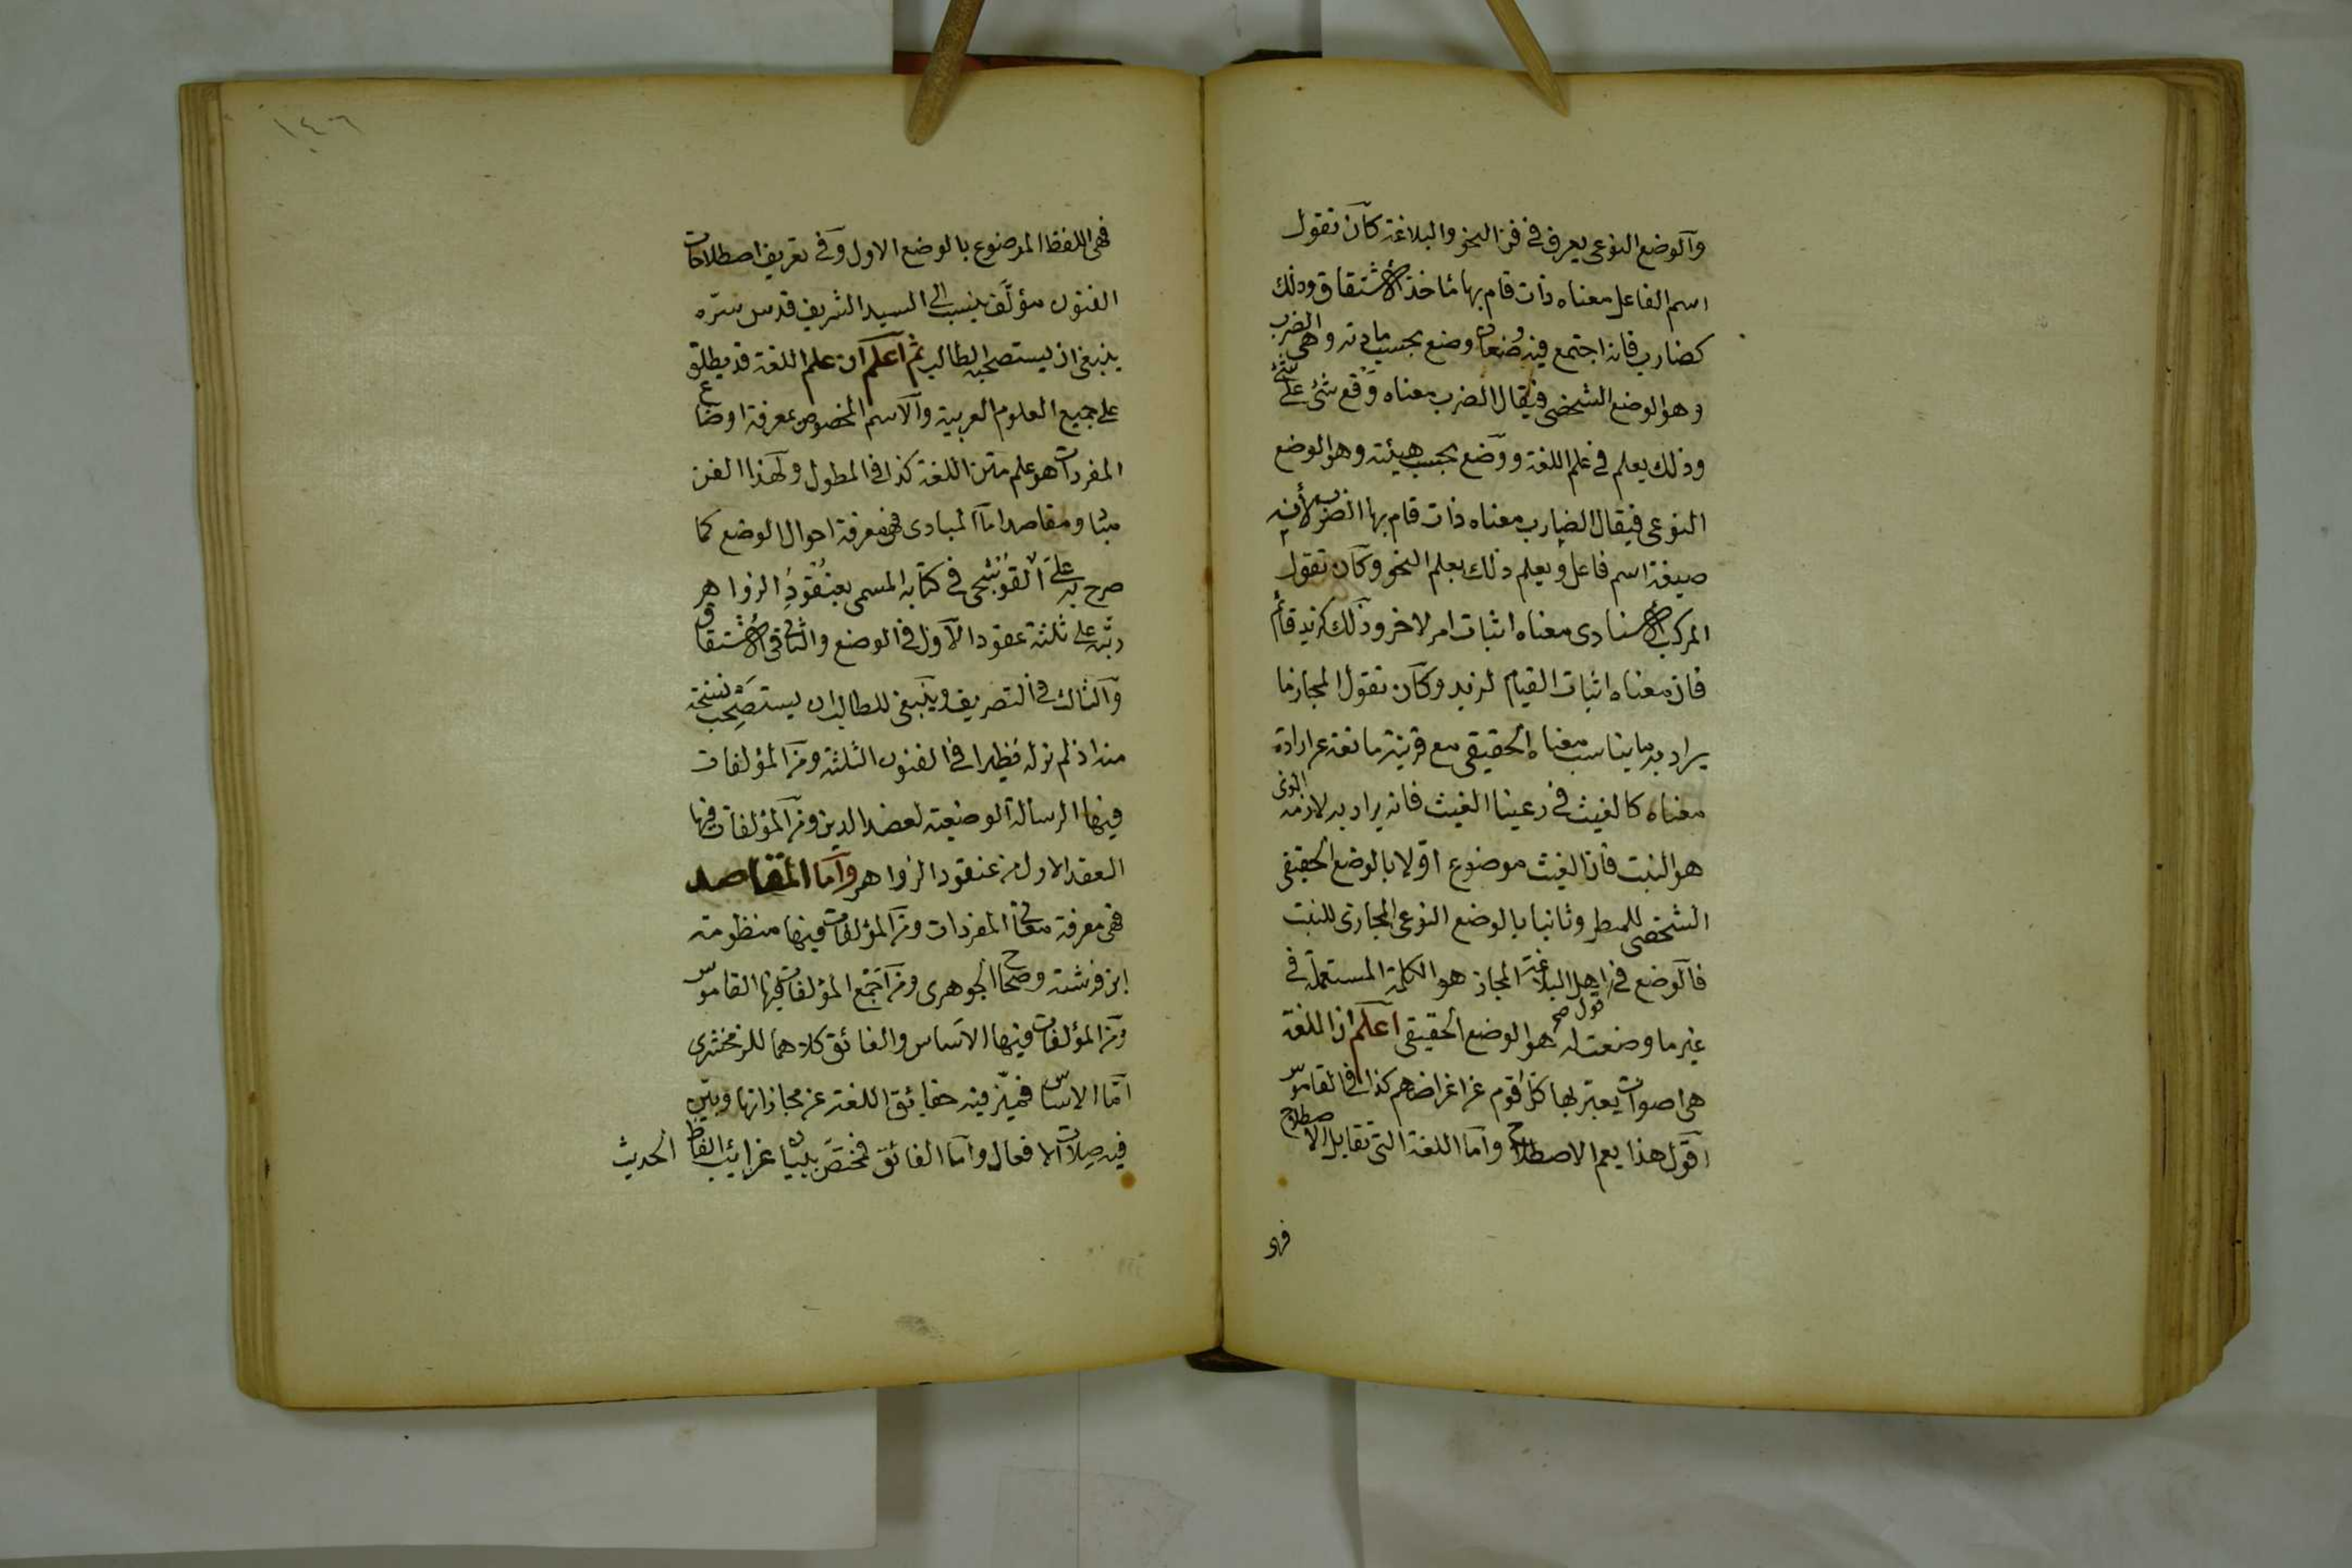 وآلوضع النوعى يعرف فى فن النحو والبلاغة كآن تقول
اسم الفاعل معناه ذات قام بها مأخذ الأشتقاق وذلك
كضارب فانه اجتمع فيه وضعان وضع بحسب مادته وهى الضرب
وهو الوضع الشخصى فيقال الضرب معناه وقع شئ على شئ
وذلك يعلم فى علم اللغة ووضع بحسب هيئته وهو الوضع
النوعى فيقال الضارب معناه ذات قام بها الضرب لأنه
صيغة اسم فاعل ويعلم ذلك بعلم النحو وكآن تقول
المركب الأسنادى معناه اثبات امر لاخر وذلك كزيد قائم
فان معناه اثبات القيام لزيد وكآن تقول المجاز ما
يراد به ما يناسب معناه الحقيقى مع قرينة مانعة عن ارادة
معناه كالغيث فى رعينا الغيث فانه يراد به لازمه الذى
هو النبت فان الغيث موضوع اولا بالوضع الحقيقى
الشخصى للمطر وثانيا بالوضع النوعى المجازى للنبت
فآلوضع فى قول اهل البلاغة المجاز هو الكلمة المستعملة فى
غير ما وضعت له هو الوضع الحقيقى اعلم ان اللغة
هى اصوات يعبر بها كل قوم عن اغراضهم كذا فى القاموس
اقول هذا يعم الاصطلاح وآما اللغة التى تقابل الاصطلاح
فهى
١٤٦
فهى اللفظ الموضوع بالوضع الاول وفى تعريف اصطلاحات
الفنون مؤلف ينسب الى السيد الشريف قدس سره
ينبغى ان يستصحبه الطالب ثم اعلم ان علم اللغة قد يطلق
على جميع العلوم العربية وآلاسم المخصوص بمعرفة اوضاع
المفردات هو علم متن اللغة كذا فى المطول ولهذا الفن
مبادئ ومقاصد اما المبادى فهى معرفة احوال الوضع كما
صرح به على القوشجى فى كتابه المسمى بعنقود الزواهر
رتبه على ثلثة عقود الآول فى الوضع والثانى فى الاشتقاق
وآلثالث فى التصريف وينبغى للطالب ان يستصحب نسخة
منه اذ لم نر له نظيرا فى الفنون الثلثة ومن المؤلفات
فيها الرسالة الوضعية لعضد الدين ومن المؤلفات فيها
العقد الاول من عنقود الزواهر وآما المقاصد
فهى معرفة معانى المفردات ومن المؤلفات فيها منظومة
ابن فرشته وصحاح الجوهرى ومن اجمع المؤلفات فيها القاموس
ومن المؤلفات فيها الاساس والفائق كلاهما للزمخشرى
امّا الاساس فميّز فيه حقائق اللغة عن مجازاتها وبيّن
فيه صلات الافعال وآما الفائق فمختص ببيان غرائب الفاظ الحديث